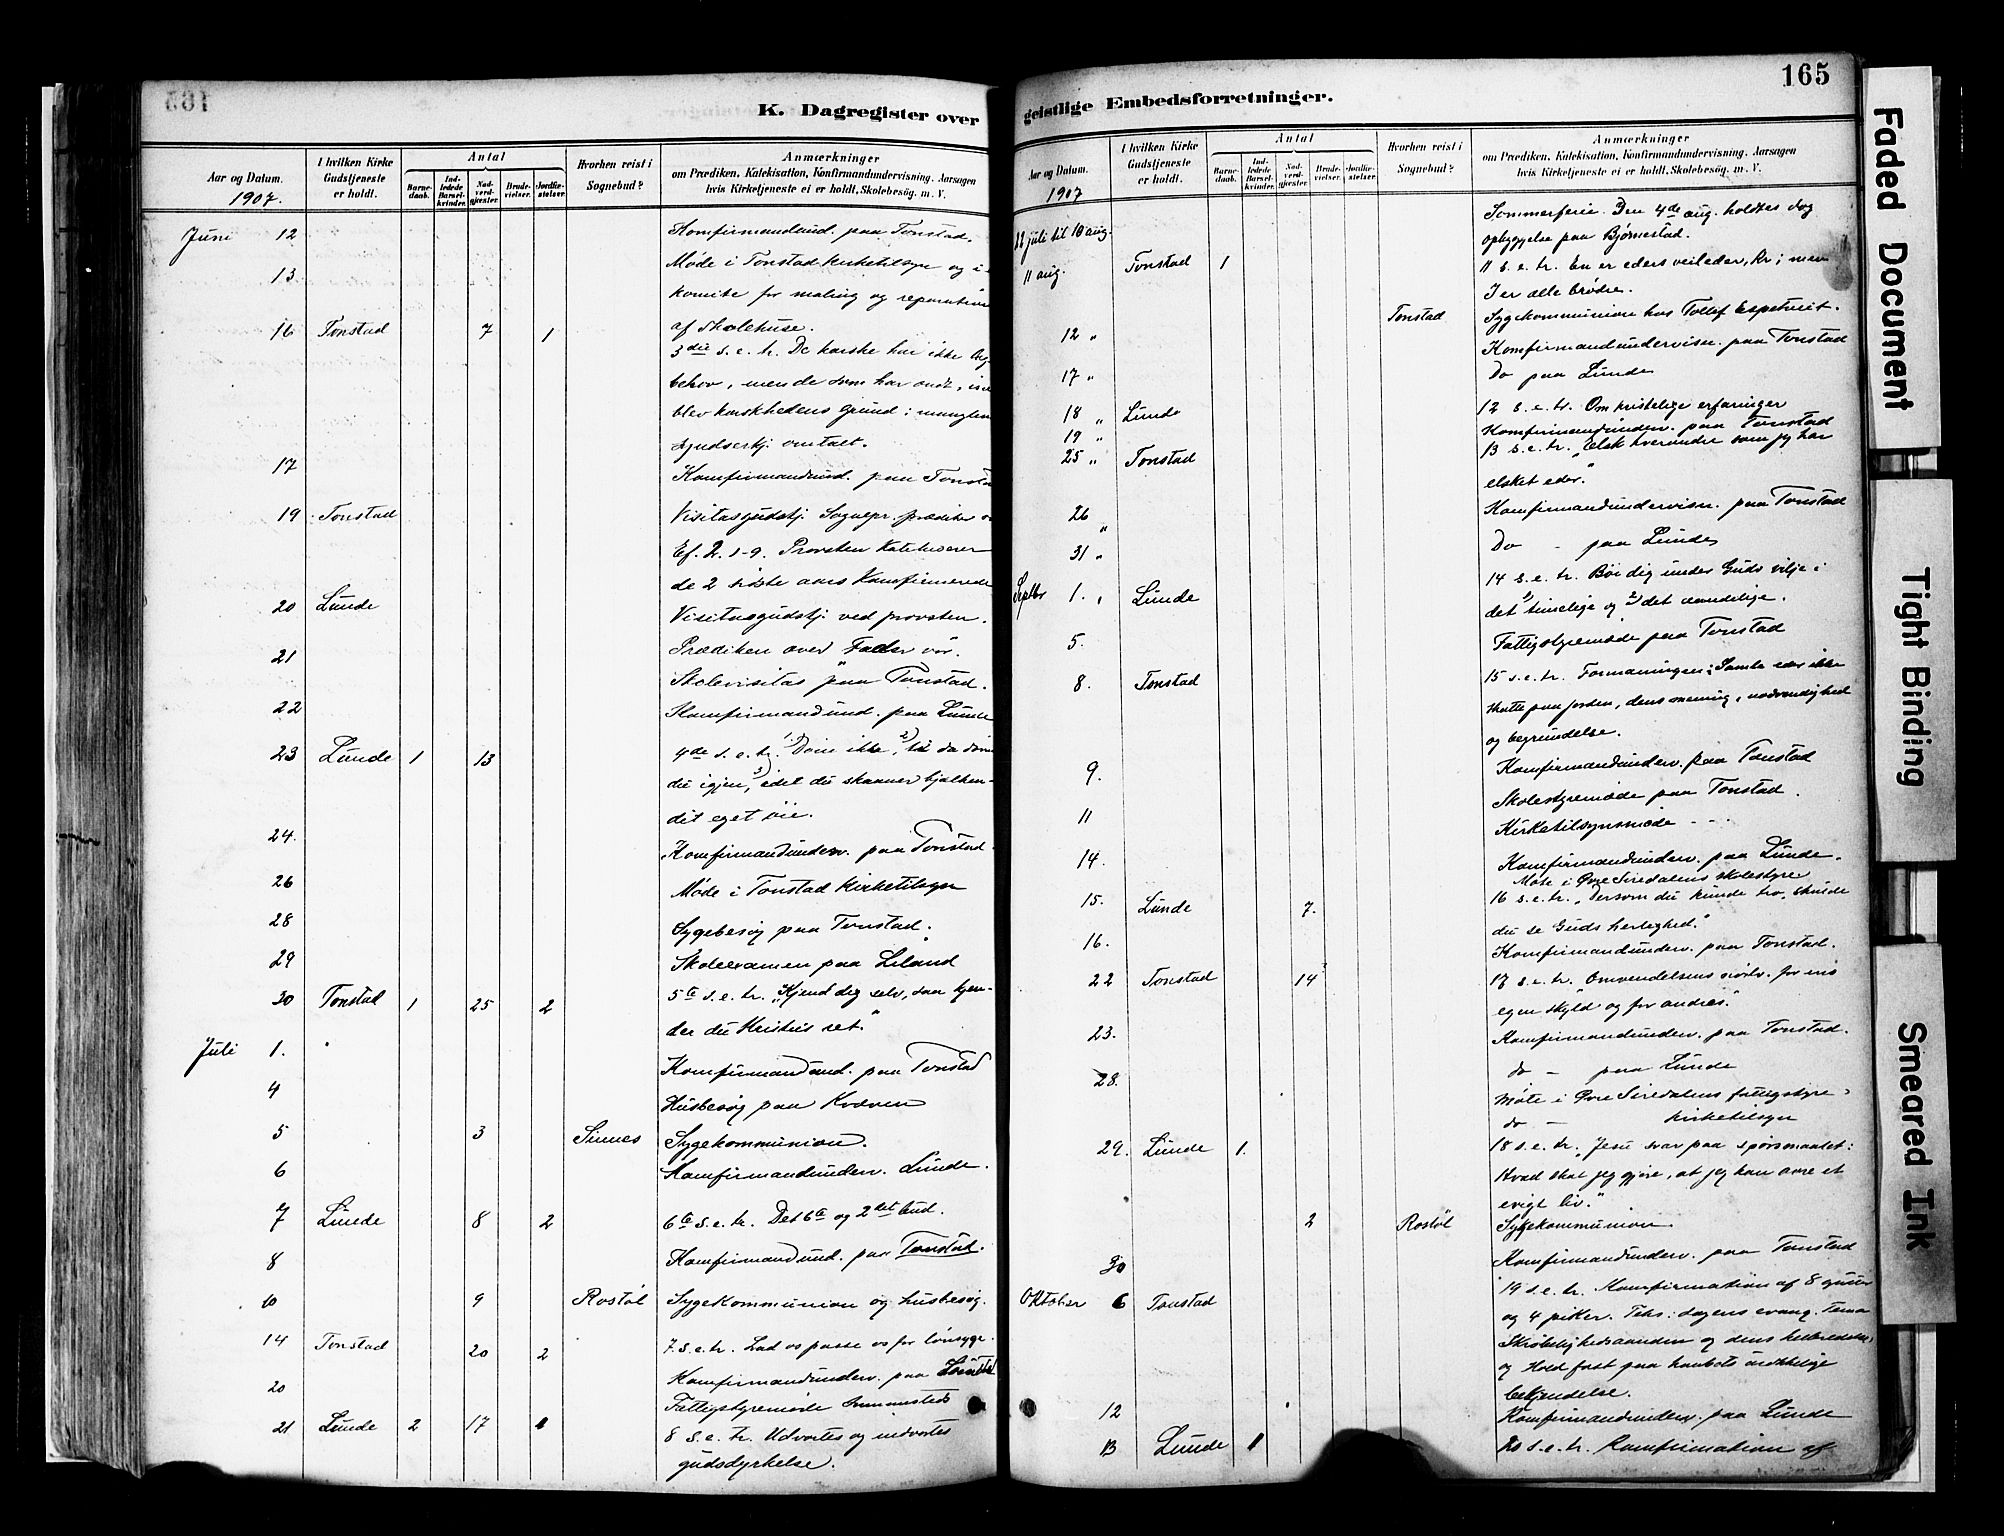 K. Dagregister over
Aar og Datum. 1907.
I hvilken Kirke Gudstjeneste er holdt.
Antal
Barnedaab.
Indledede Barselkvinder.
Nadverdgjæster.
Brudevielser.
Jordfæstelser.
Hvorhen reist i Sognebud?
Anmærkninger
om Prædiken, Katekisation, Konfirmandundervisning, Aarsagen
hvis Kirketjeneste ei er holdt, Skolebesøg, m. V.
Juni 12 Konfirmandund. paa Tonstad.
13 Møde i Tonstad kirketilsyn og i
komite for maling og reparation
af skolehuse.
16 Tonstad 7 1 3die s. e. tr. De karske har ikke
behov, men de som har ondt,
blev karskhedens grund: manglen
omtalt.
17 Konfirmandund. paa Tonstad
19 Tonstad Visitasgudstj. Sognepr. prædiker
Ef. 2. 1-9. Provsten katekiserer
de 2 siste aars konfirmerede
20 Lunde Visitasgudstj. ved provsten.
Prædiken over Fader vor.
21 Skolevisitas paa Tonstad.
22 Konfirmandund. paa Lunde
23 Lunde 1 13 4de s. e. tr. 1) Døm ikke, 2) til da døm
du igjen, 3) idet du skauer bjælken
dit eget øie.
24. Konfirmandunderv. paa Tonstad.
26 Møde i Tonstad kirketilsyn
28 Sygebesøg paa Tonstad.
29 Skoleexamen paa Liland
30 Tonstad 1 25 2 5te s. e. tr. "Kjend dig selv, saa kjen-
der du Kristus ret."
Juli 1. Konfirmandund. paa Tonstad
4 Husbesøg paa Kvæven
5 3 Sinnes Sygekommunion.
6 Konfirmandunderv. Lunde.
7 Lunde 8 2 6te s. e. tr. Det 6te og 2det bud.
8 Konfirmandund. paa Tonstad.
10 9 Rostøl Sygekommunion og husbesøg.
14 Tonstad 20 2 7. s. e. tr. Lad os passe os for lønsyge.
20 Konfirmandunderv. paa
Fattigstyremøde
21 Lunde 2 17 1 8 s. e. tr. Udvortes og indvortes
gudsdyrkelse.
geistlige Embedsforretninger.
165
Aar og Datum. 1907
I hvilken Kirke Gudstjeneste er holdt.
Antal
Barnedaab.
Indledede Barselkvinder.
Nadverdgjæster.
Brudevielser.
Jordfæstelser.
Hvorhen reist i Sognebud?
Anmærkninger
om Prædiken, Katekisation, Konfirmandundervisning, Aarsagen
hvis Kirketjeneste ei er holdt, Skolebesøg, m. V.
22 juli til 10 aug. Sommerferie. Den 4de aug. holdtes dog
opbyggelse paa Bjørnestad.
11 aug. Tonstad 1 11 s. e. tr. En er eders veileder, Kr; men
I er alle brødre.
Tonstad Sygekommunion hos Tollef Espetveit.
12 " Konfirmandundervisn. paa Tonstad
17 " Do paa Lunde
18 " Lunde 12 s. e. tr. Om kristelige erfaringer
19 " Konfirmandunderv. paa Tonstad
25 " Tonstad 13 s. e. tr. "Elsk hverandre som jeg har
elsket eder."
26 " Konfirmandundervisn. paa Tonstad
31 " Do - paa Lunde
Septbr 1. " Lunde 14 s. e. tr. Bøi dig under Guds vilje i
det 1) timelige og 2) det aandelige.
5. Fattigstyremøde paa Tonstad
8. Tonstad 15 s. e. tr. Formaningen: Samle eder ikke
skatte paa jorden, dens mening, nødvendighed
og begrundelse.
9. Konfirmandunderv. paa Tonstad
Skolestyremøde paa Tonstad.
11 Kirketilsynsmøde - - -
14. Konfirmandunderv. paa Lunde.
Møte i Øvre Siredalens skolestyre
15. Lunde 7. 16 s. e. tr. "Dersom du kunde tro, skulde
du se Guds herlighed."
16. Konfirmandunderv. paa Tonstad.
22 Tonstad 14 17 s. e. tr. Omvendelsens nødv. for vis
egen skyld og for andres."
23. Konfirmandunderv. paa Tonstad.
28. do - paa Lunde
Møte i Øvre Siredalens fattigstyre
do - kirketilsyn
29. Lunde 1. 18 s. e. tr. "Jesu svar paa spørsmaalet:
Hvad skal jeg gjøre, at jeg kan arve et
evigt liv."
2 Rostøl Sygekommunion
30 Konfirmandunderv. paa Tonstad
Oktober 6 Tonstad 19 s. e. tr. Konfirmation af 8 gutter
og 4 piker. Teks: dagens evang. Tema
Skrøbelighedsaanden og dens helbredelse,
og Hold fast paa haabets urokkelige
bekjendelse.
12 Konfirmandunderv. paa Lunde
13 Lunde 1 20 s. e. tr. Konfirmation af
Faded Document
Tight Binding
Smeared Ink